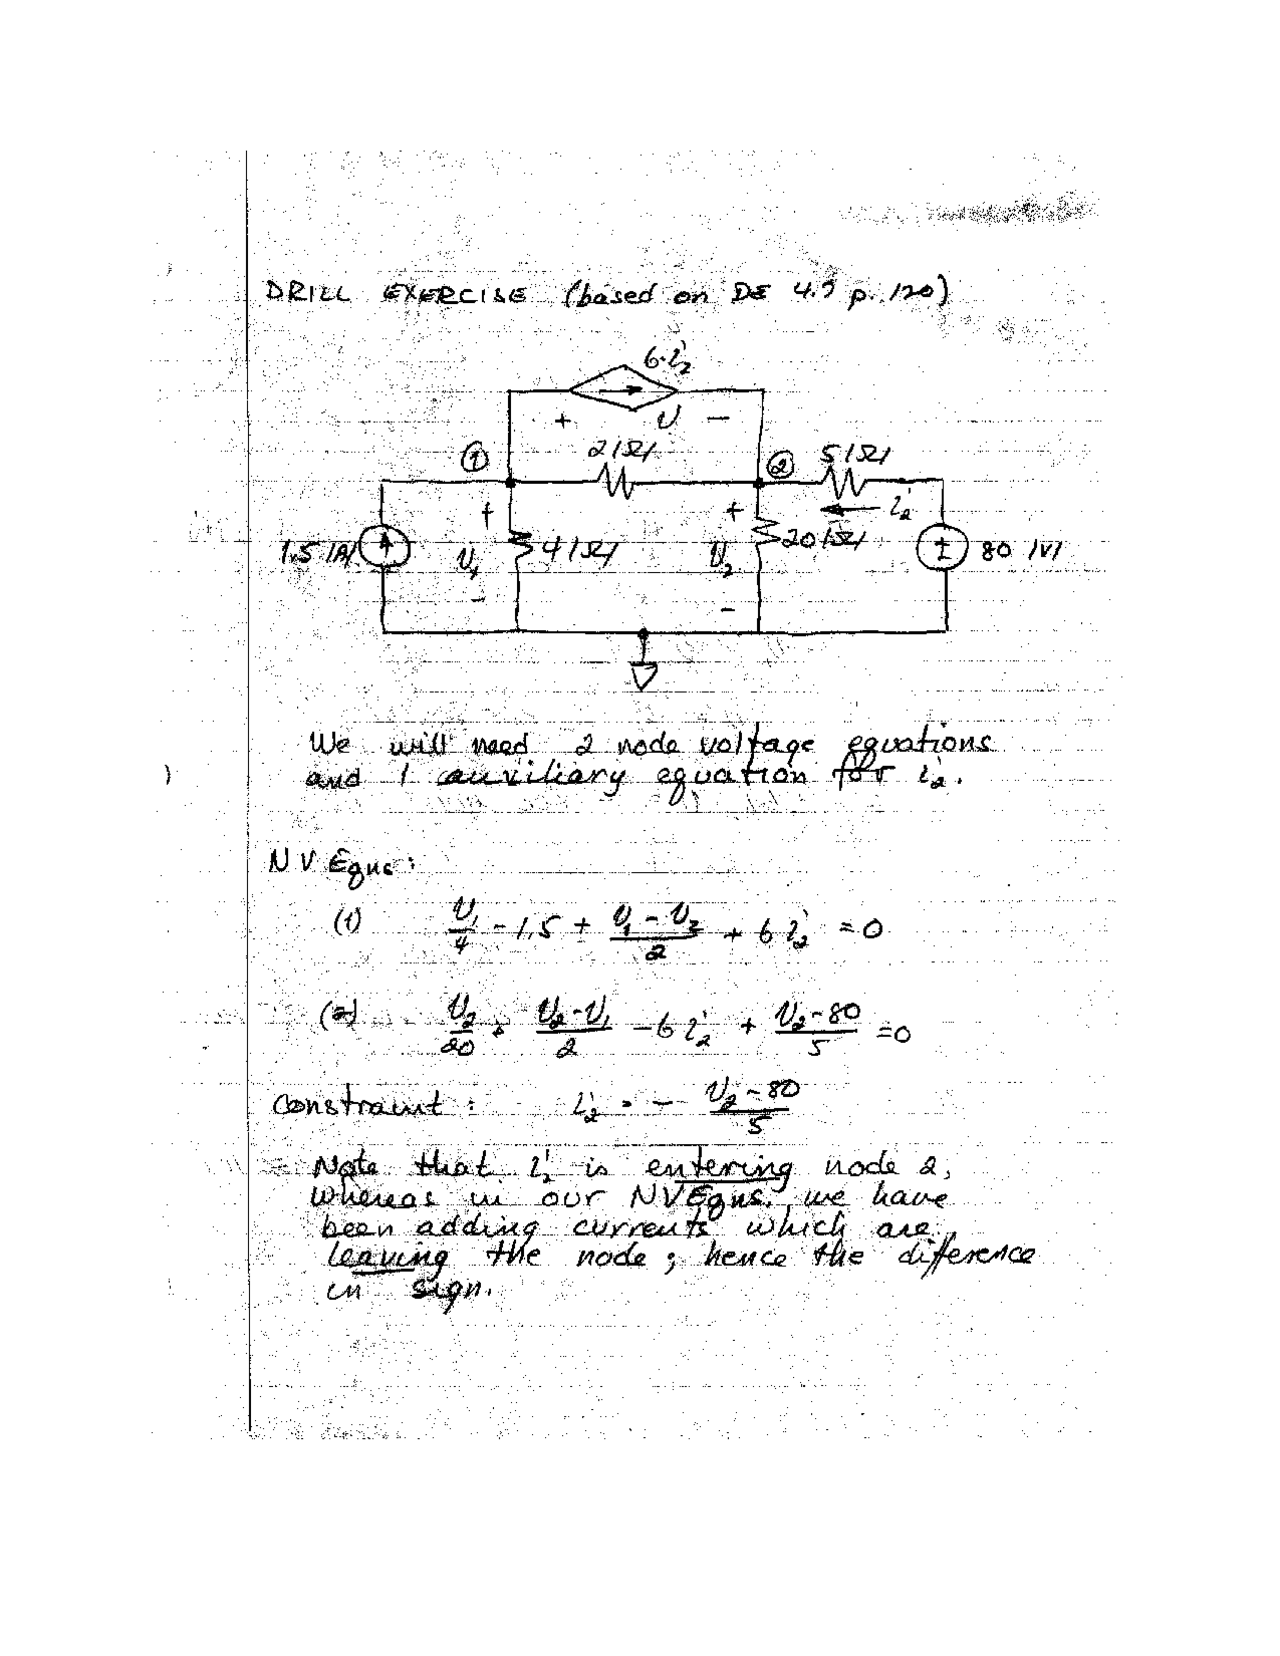 DRILL EXERCISE (based on DE 4.5 p. 120)
6·i₂
+ v −
① 2 |Ω| ② 5 |Ω|
+ + i₂
1.5 |A| v₁ 4 |Ω| v₂ 20 |Ω| ± 80 |V|
− −
We will need 2 node voltage equations
and 1 auxiliary equation for i₂.
NV Eqns:
(1) v₁/4 - 1.5 + (v₁ - v₂)/2 + 6 i₂ = 0
(2) v₂/20 + (v₂ - v₁)/2 - 6 i₂ + (v₂ - 80)/5 = 0
Constraint: i₂ = - (v₂ - 80)/5
Note that i₂ is entering node 2,
whereas in our NV Eqns. we have
been adding currents which are
leaving the node; hence the difference
in sign.